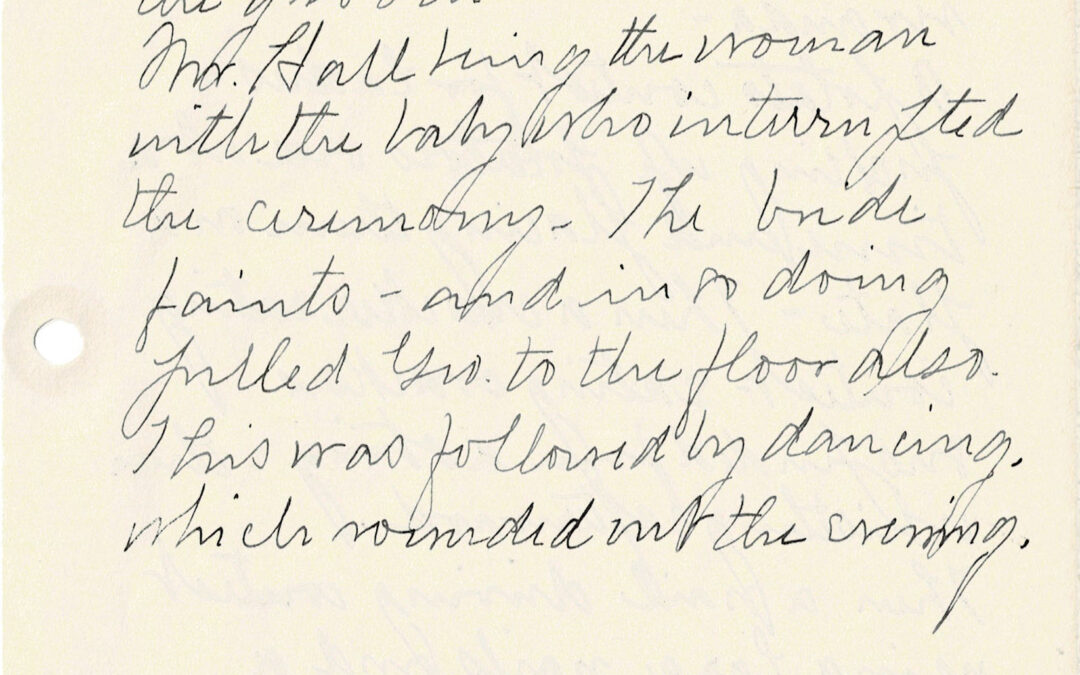 the groom.
Mr. Hall being the woman
with the baby who interrupted
the ceremony - The bride
faints - and in so doing
pulled Geo. to the floor also.
This was followed by dancing.
which rounded out the evening.